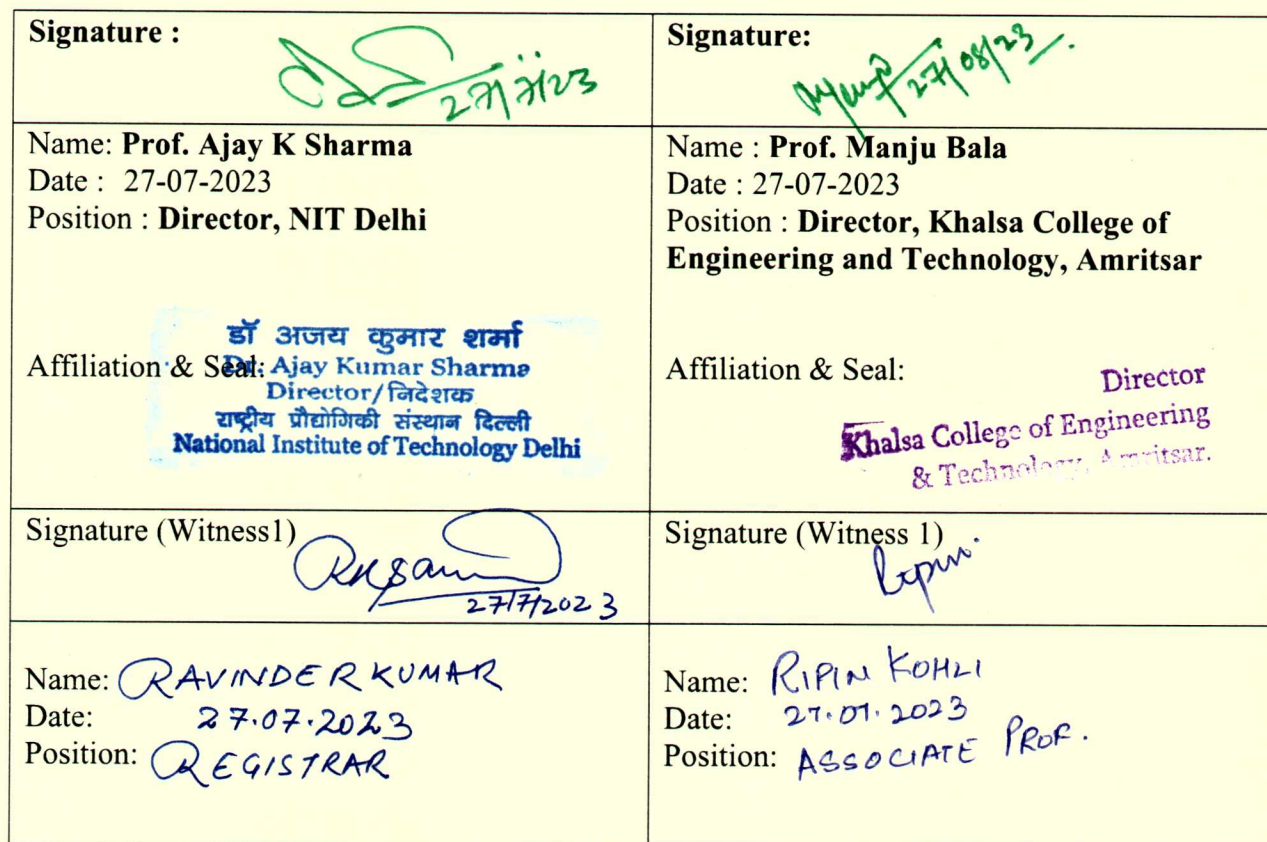 Signature :
27/7/23
Name: Prof. Ajay K Sharma
Date : 27-07-2023
Position : Director, NIT Delhi
Affiliation & Seal:
डॉ अजय कुमार शर्मा
Dr. Ajay Kumar Sharma
Director/निदेशक
राष्ट्रीय प्रौद्योगिकी संस्थान दिल्ली
National Institute of Technology Delhi
Signature:
27/08/23
Name : Prof. Manju Bala
Date : 27-07-2023
Position : Director, Khalsa College of
Engineering and Technology, Amritsar
Affiliation & Seal:
Director
Khalsa College of Engineering
& Technology, Amritsar.
Signature (Witness1)
27/7/2023
Name: RAVINDER KUMAR
Date: 27.07.2023
Position: REGISTRAR
Signature (Witness 1)
Ripin
Name: RIPIN KOHLI
Date: 27.07.2023
Position: ASSOCIATE PROF.